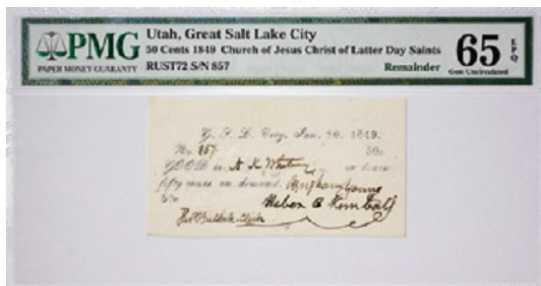 PMG
PAPER MONEY GUARANTY
Utah, Great Salt Lake City
50 Cents 1849 Church of Jesus Christ of Latter Day Saints
RUST72 S/N 857
Remainder
65 EPQ
Gem Uncirculated
G. S. L. City, Jan. 20, 1849.
No. 857 50c
GOOD to N K Whitney or bearer
fifty cents on demand. Brigham Young
Heber C Kimball
Tho. Bullock Clerk